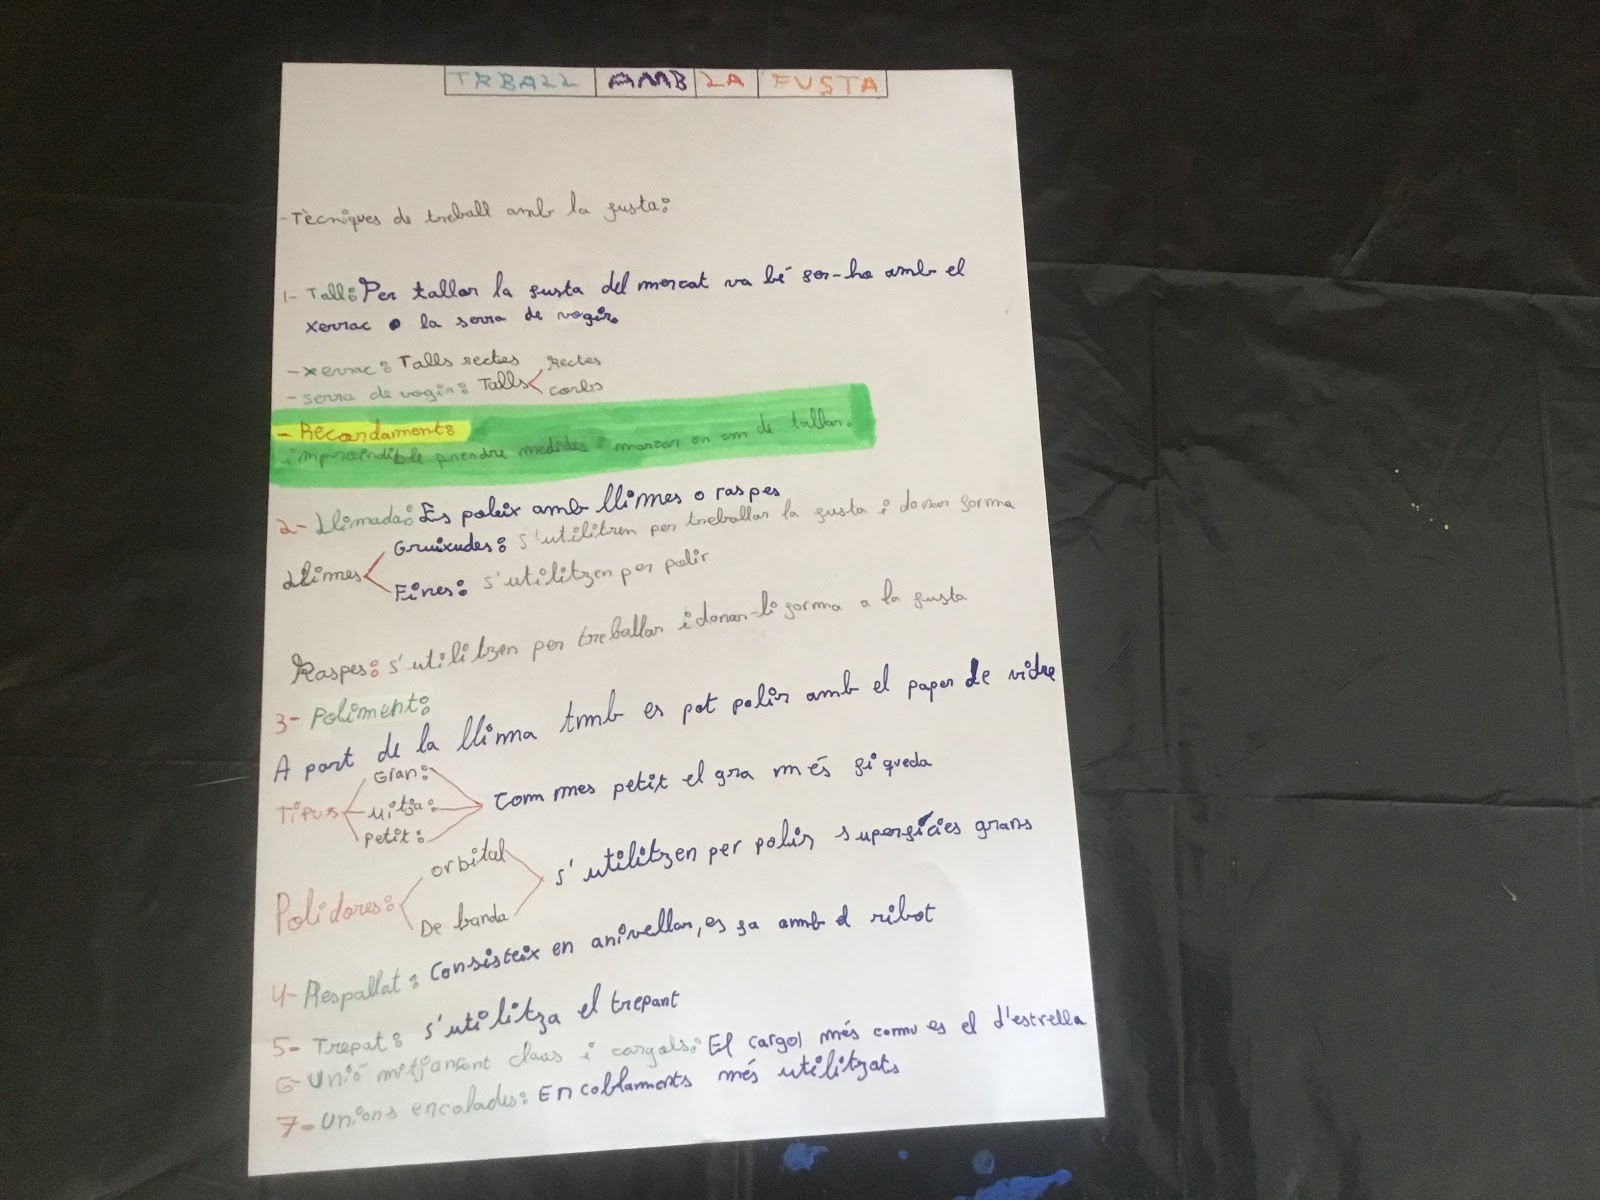 TRBALL AMB LA FUSTA
-Tècniques de treball amb la fusta:
1- Tall: Per tallar la fusta del mercat va bé fer-ho amb el
xerrac o la serra de vogir.
-xerrac: Talls rectes
-serra de vogir: Talls rectes
corbs
- Recordament:
imprecindible prendre medides i marcar on em de tallar.
2- Llimada: Es poleix amb llimes o raspes
Llimes
Gruixudes: s'utilitren per treballar la fusta i donar forma
Fines: s'utilitzen per polir
Raspes: s'utilitzen per treballar i donar-li forma a la fusta
3- Poliment:
A part de la llima tmb es pot polir amb el paper de vidre
Tipus
Gran:
Mitja:
Petit:
Com mes petit el gra més fi queda
Polidores:
orbital
De banda
s'utilitzen per polir superfícies grans
4- Respallat: Consisteix en anivellar, es fa amb el ribot
5- Trepat: s'utilitza el trepant
6- Unió mitjançant claus i cargols: El cargol més comu es el d'estrella
7- Unions encolades: Encoblaments més utilitzats